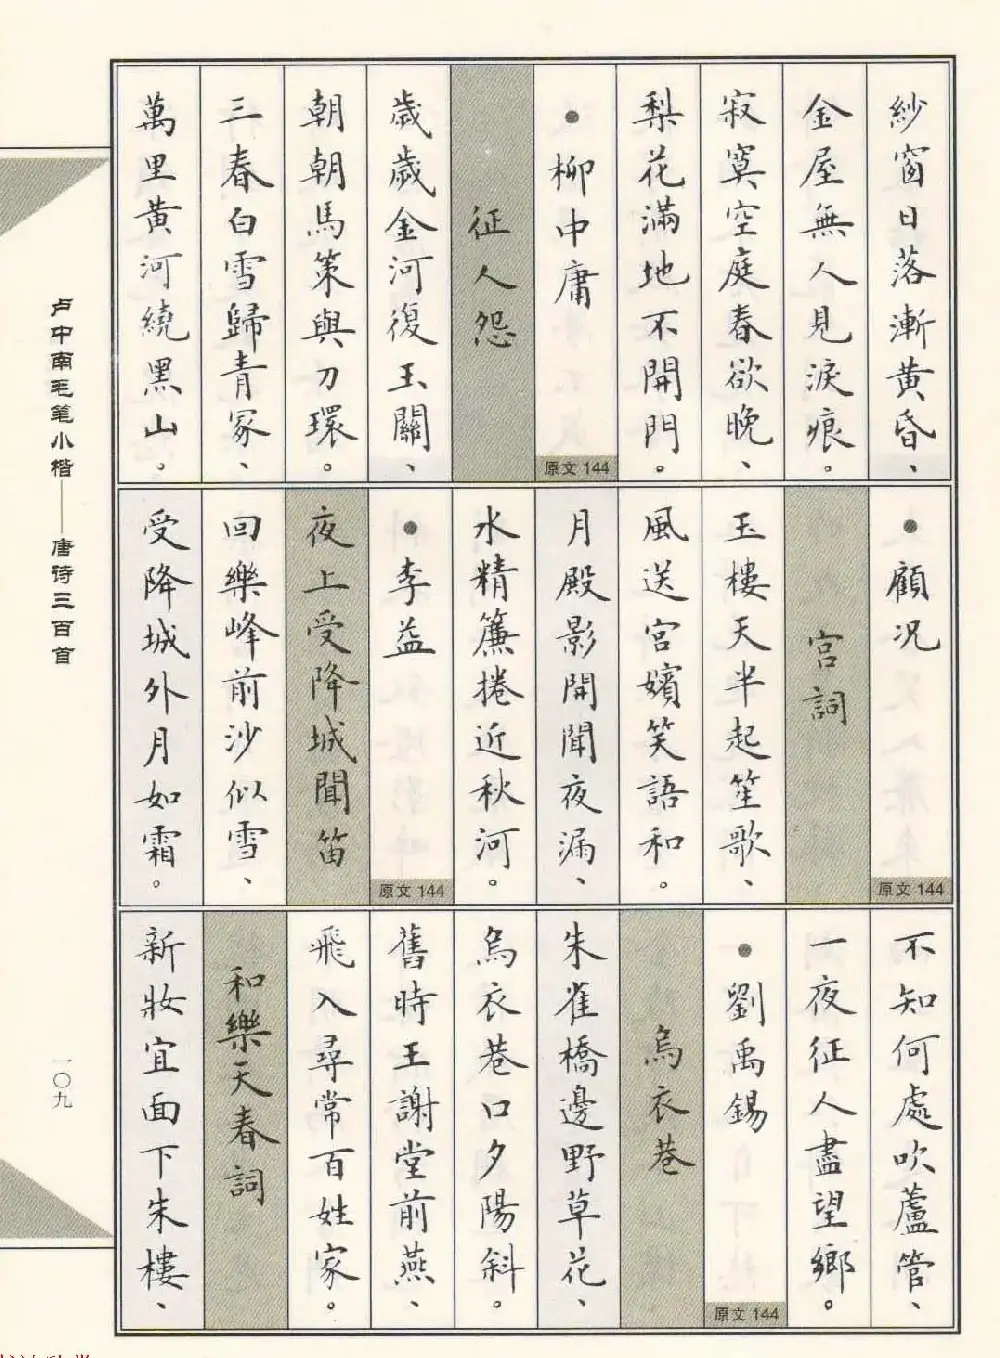 紗窗日落漸黄昏、
金屋無人見淚痕。
寂寞空庭春欲晚、
梨花滿地不開門。
●柳中庸
原文144
征人怨
歲歲金河復玉關、
朝朝馬策與刀環。
三春白雪歸青冢、
萬里黄河繞黑山。
●顧况
原文144
宫詞
玉樓天半起笙歌、
風送宫嬪笑語和。
月殿影開聞夜漏、
水精簾捲近秋河。
●李益
原文144
夜上受降城聞笛
回樂峰前沙似雪、
受降城外月如霜。
不知何處吹蘆管、
一夜征人盡望鄉。
●劉禹錫
原文144
烏衣巷
朱雀橋邊野草花、
烏衣巷口夕陽斜。
舊時王謝堂前燕、
飛入尋常百姓家。
和樂天春詞
新妝宜面下朱樓、
卢中南毛笔小楷——唐诗三百首
一〇九